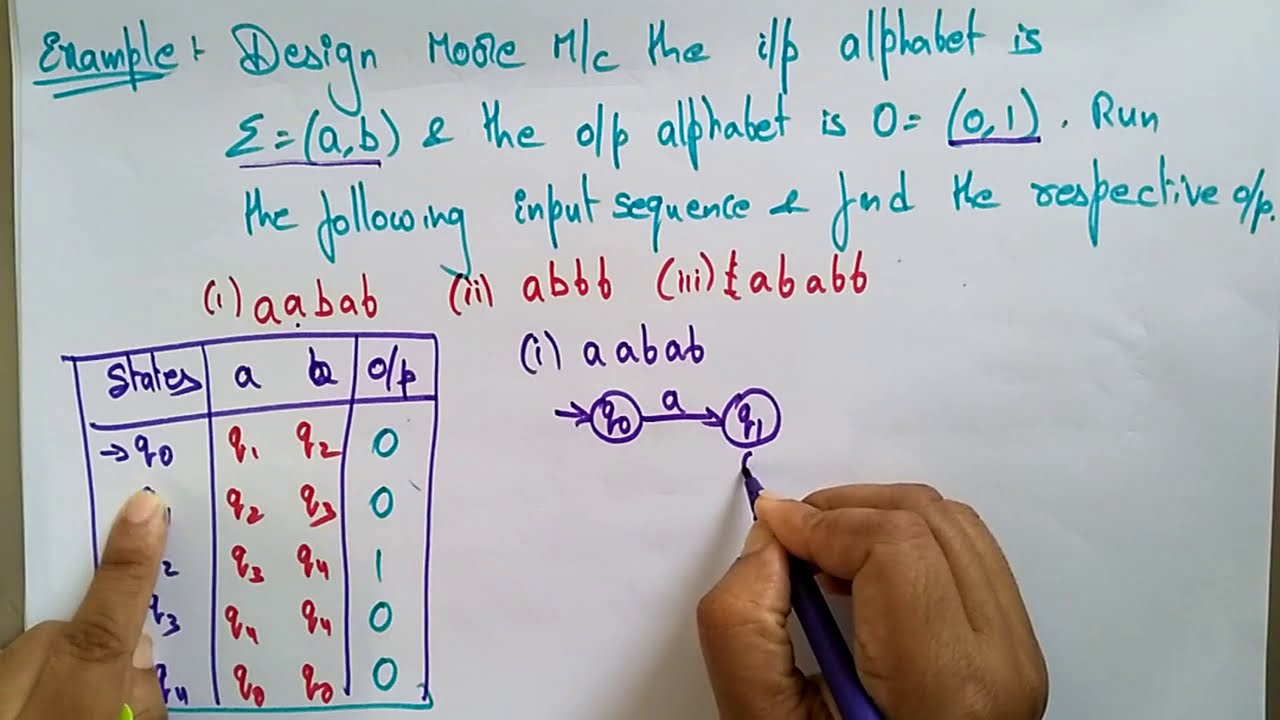 Example:- Design Moore M/c the i/p alphabet is
Σ=(a,b) & the o/p alphabet is O= (0,1). Run
the following input sequence & find the respective o/p.
(i) aabab (ii) abbb (iii) ababb
(i) aabab
→ q0 a → q1
States a b o/p
→q0 q1 q2 0
q2 q3 0
2 q3 q4 1
q3 q4 q4 0
q4 q0 q0 0